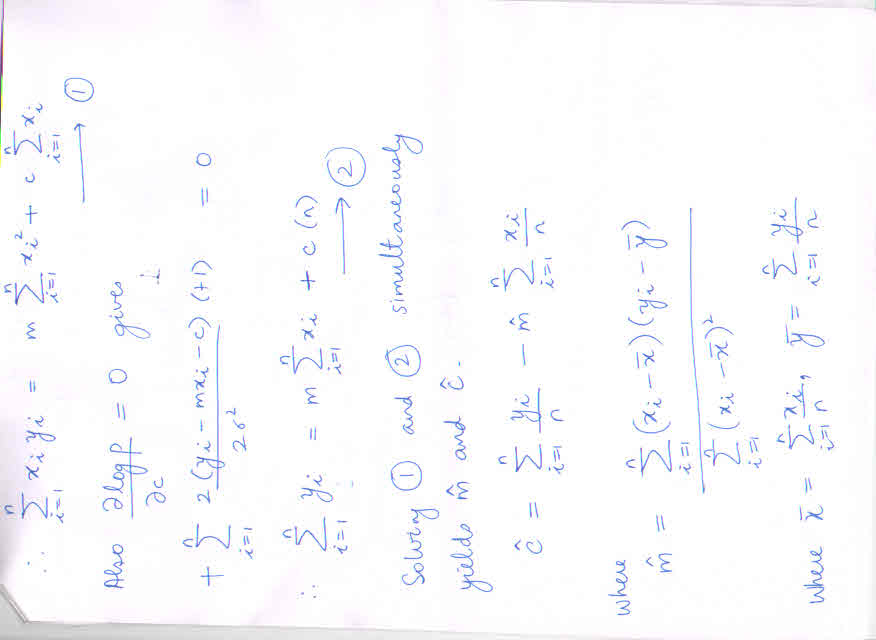 ∴ ∑_{i=1}^{n} x_i y_i = m ∑_{i=1}^{n} x_i² + c ∑_{i=1}^{n} x_i
⟶ ①
Also ∂logp/∂c = 0 gives
+ ∑_{i=1}^{n} 2(y_i − mx_i − c)/2σ² (+1) = 0
∴ ∑_{i=1}^{n} y_i = m ∑_{i=1}^{n} x_i + c (n)
⟶ ②
Solving ① and ② simultaneously
yields m̂ and ĉ.
ĉ = ∑_{i=1}^{n} y_i/n − m̂ ∑_{i=1}^{n} x_i/n
where
m̂ = ∑_{i=1}^{n} (x_i − x̄)(y_i − ȳ) / ∑_{i=1}^{n} (x_i − x̄)²
where x̄ = ∑_{i=1}^{n} x_i/n, ȳ = ∑_{i=1}^{n} y_i/n